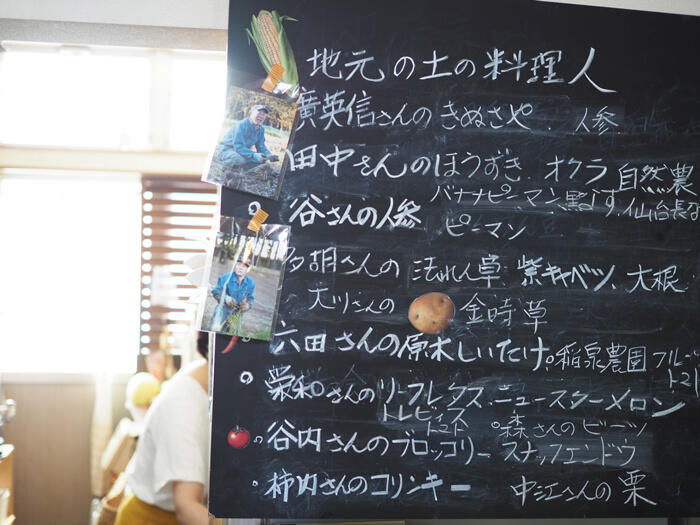 地元の土の料理人
廣英信さんの きぬさや 人参
田中さんのほうずき オクラ 自然農
バナナピーマン 黒なす 仙台長
谷さんの人参
ピーマン
多胡さんの 法れん草 紫キャベツ、大根
大川さんの 金時草
六田さんの原木しいたけ。稲泉農園 フルー
トマト
栄和さんのリーフレタス・ニュースターメロン
トレビィス
トマト
森さんのビーツ
谷内さんのブロッコリー スナップエンドウ
柿内さんのコリンキー 中江さんの栗